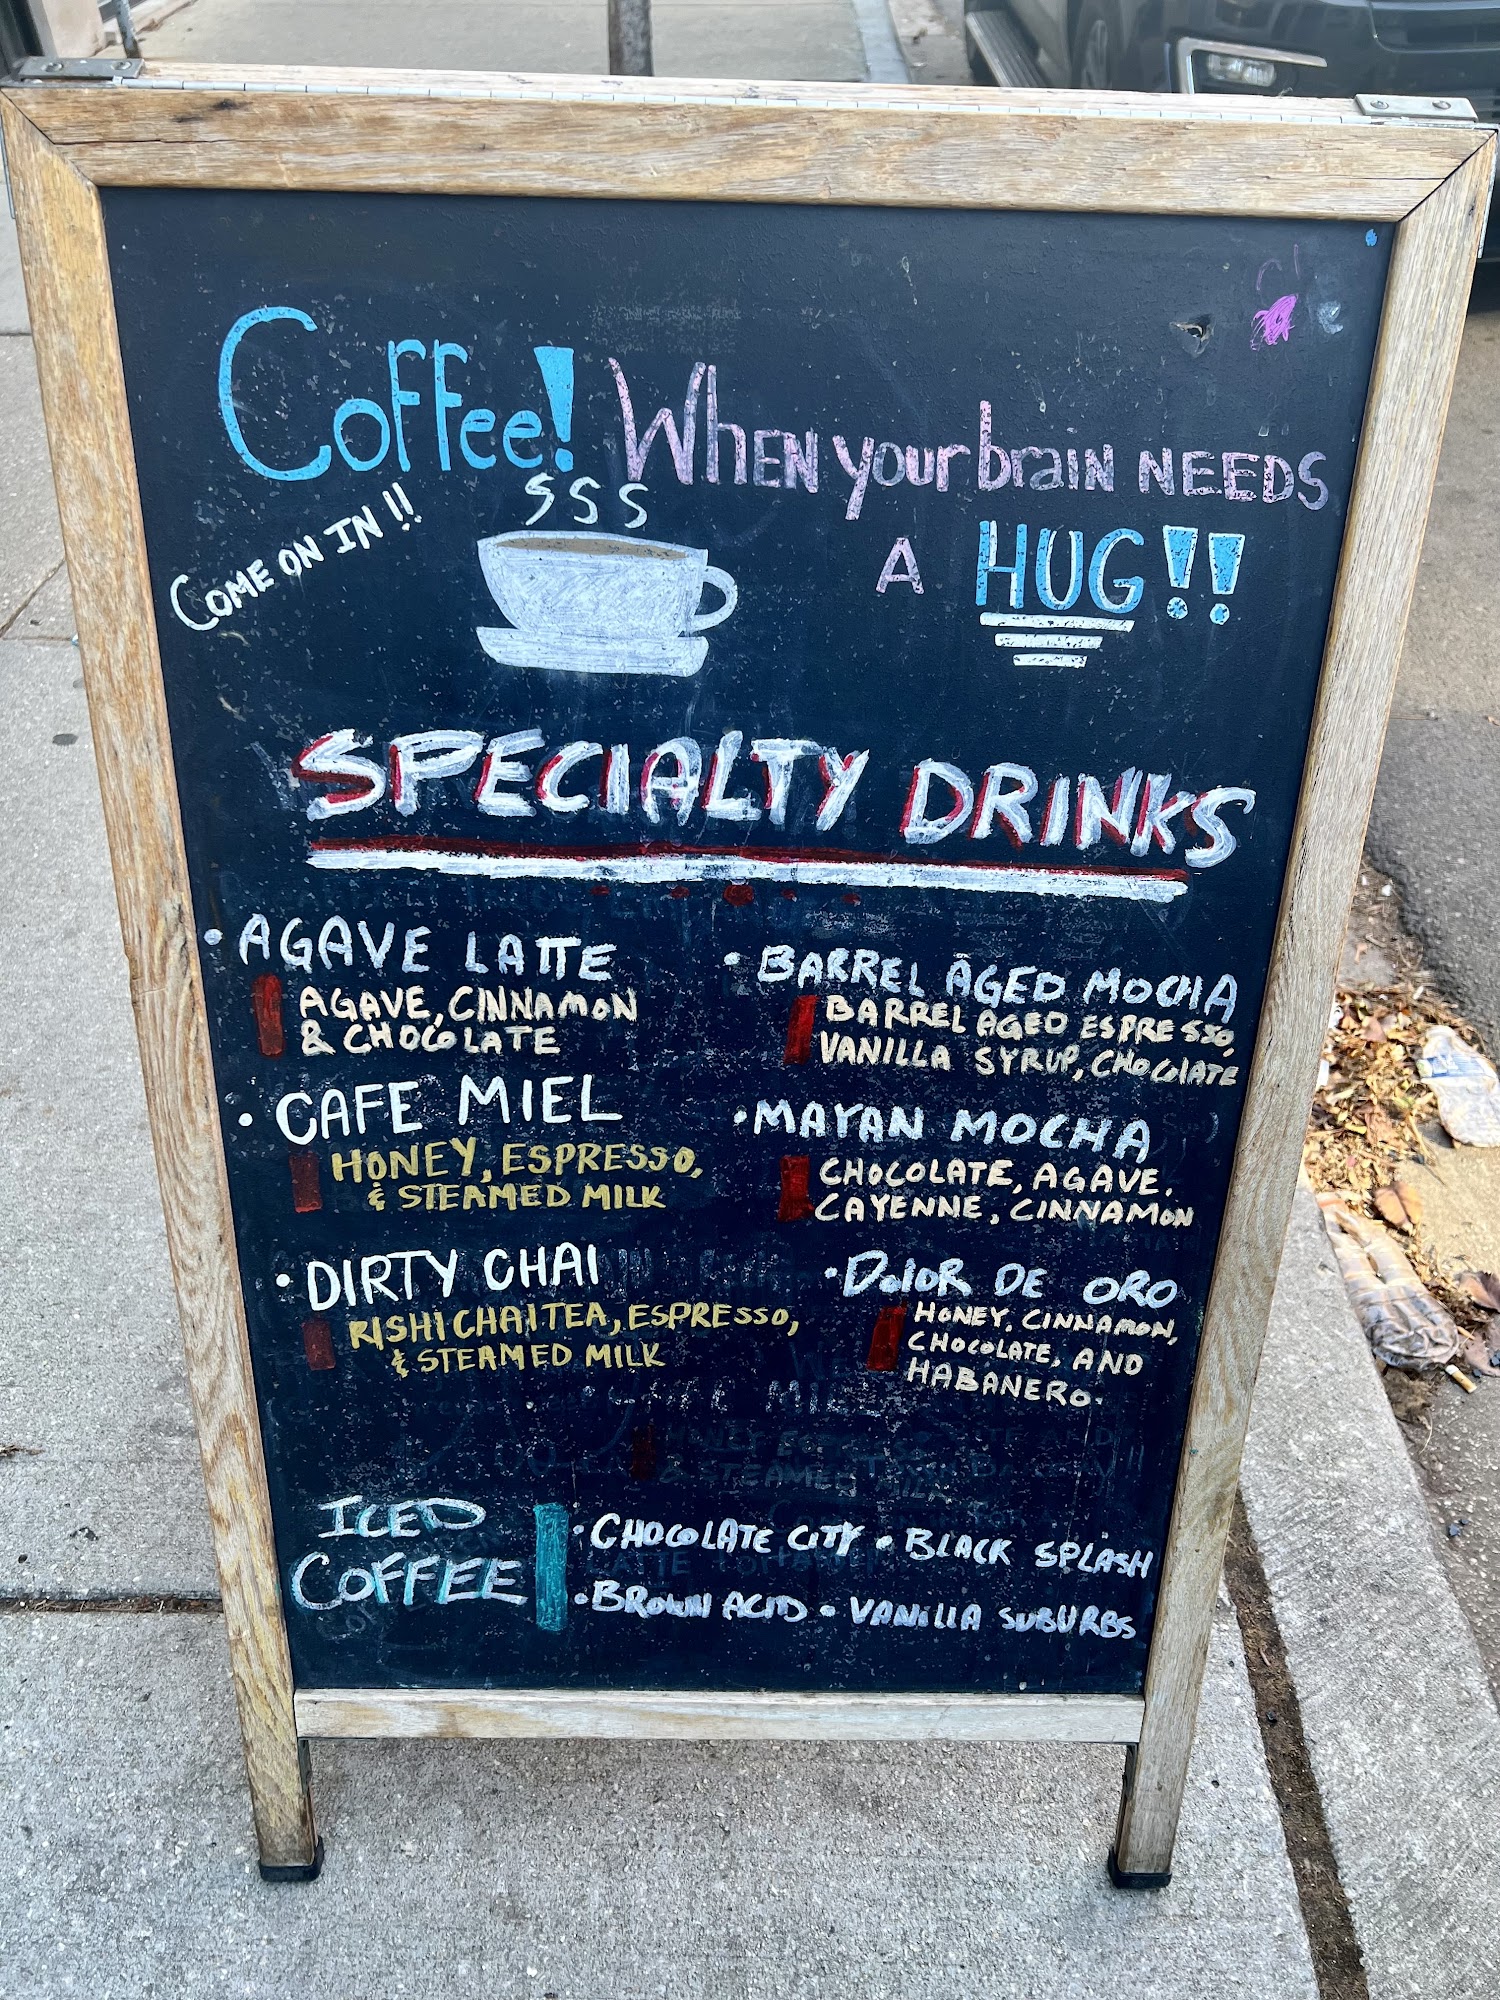 Coffee! When your brain needs
a HUG!!
COME ON IN!!
SPECIALTY DRINKS
• AGAVE LATTE
AGAVE, CINNAMON
& CHOCOLATE
• CAFE MIEL
HONEY, ESPRESSO,
& STEAMED MILK
• DIRTY CHAI
RISHI CHAI TEA, ESPRESSO,
& STEAMED MILK
• BARREL AGED MOCHA
BARREL AGED ESPRESSO,
VANILLA SYRUP, CHOCOLATE
• MAYAN MOCHA
CHOCOLATE, AGAVE,
CAYENNE, CINNAMON
• DOLOR DE ORO
HONEY, CINNAMON,
CHOCOLATE, AND
HABANERO.
ICED
COFFEE
• CHOCOLATE CITY • BLACK SPLASH
• BROWN ACID • VANILLA SUBURBS